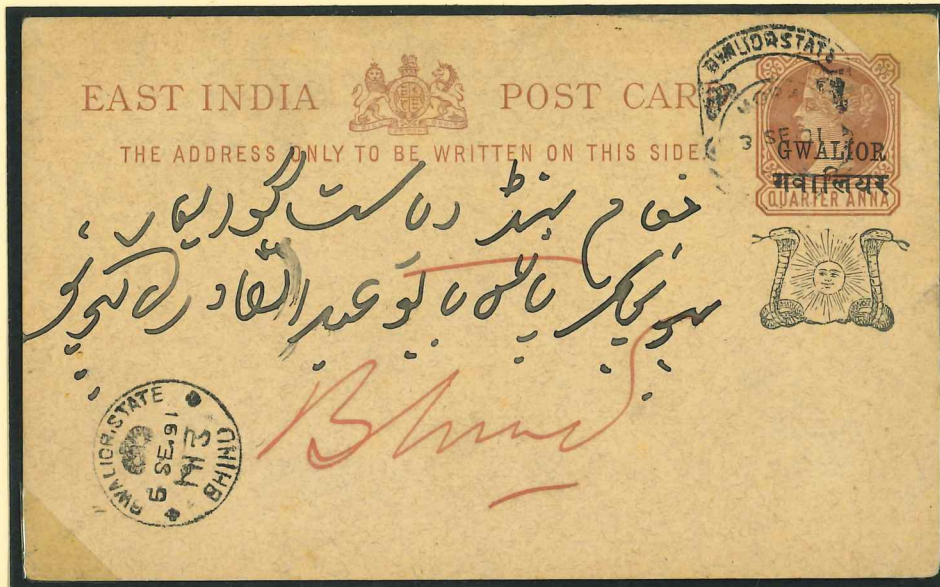 EAST INDIA POST CARD
THE ADDRESS ONLY TO BE WRITTEN ON THIS SIDE.
GWALIOR STATE
3 SE 91
GWALIOR
गवालियर
QUARTER ANNA
مقام بھنڈ ریاست گوالیار
پاس بابو عبدالقادر
Bhind
GWALIOR.STATE
BHIND
5 SE.91